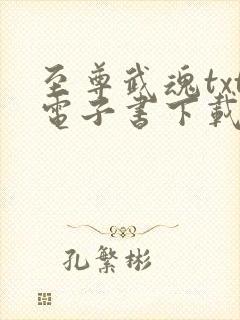 至尊武魂txt
電子書下載
孔繁彬